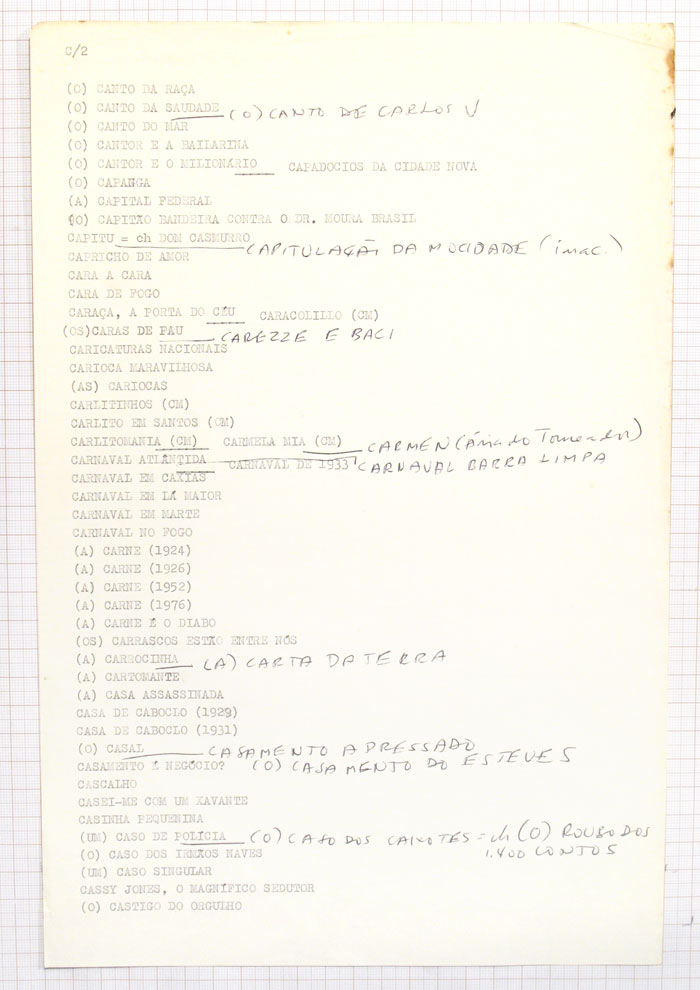 C/2
(O) CANTO DA RAÇA
(O) CANTO DA SAUDADE (O) CANTO DE CARLOS V
(O) CANTO DO MAR
(O) CANTOR E A BAILARINA
(O) CANTOR E O MILIONÁRIO CAPADOCIOS DA CIDADE NOVA
(O) CAPANGA
(A) CAPITAL FEDERAL
(O) CAPITÃO BANDEIRA CONTRA O DR. MOURA BRASIL
CAPITU = ch DOM CASMURRO CAPITULAÇÃO DA MOCIDADE (inac.)
CAPRICHO DE AMOR
CARA A CARA
CARA DE FOGO
CARAÇA, A PORTA DO CÉU CARACOLILLO (CM)
(OS)CARAS DE PAU CAREZZE E BACI
CARICATURAS NACIONAIS
CARIOCA MARAVILHOSA
(AS) CARIOCAS
CARLITINHOS (CM)
CARLITO EM SANTOS (CM)
CARLITOMANIA (CM) CARMELA MIA (CM) CARMEN (Ária do Toureador)
CARNAVAL ATLÂNTIDA CARNAVAL DE 1933 CARNAVAL BARRA LIMPA
CARNAVAL EM CAXIAS
CARNAVAL EM LÁ MAIOR
CARNAVAL EM MARTE
CARNAVAL NO FOGO
(A) CARNE (1924)
(A) CARNE (1926)
(A) CARNE (1952)
(A) CARNE (1976)
(A) CARNE É O DIABO
(OS) CARRASCOS ESTÃO ENTRE NÓS
(A) CARROCINHA (A) CARTA DA TERRA
(A) CARTOMANTE
(A) CASA ASSASSINADA
CASA DE CABOCLO (1929)
CASA DE CABOCLO (1931)
(O) CASAL CASAMENTO APRESSADO
CASAMENTO É NEGÓCIO? (O) CASAMENTO DO ESTEVES
CASCALHO
CASEI-ME COM UM XAVANTE
CASINHA PEQUENINA
(UM) CASO DE POLÍCIA (O) CASO DOS CAIXOTES = ch (O) ROUBO DOS
1.400 CONTOS
(O) CASO DOS IRMÃOS NAVES
(UM) CASO SINGULAR
CASSY JONES, O MAGNÍFICO SEDUTOR
(O) CASTIGO DO ORGULHO